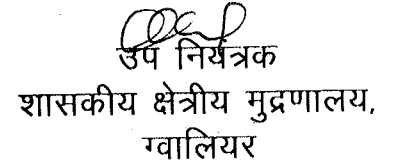 उप नियंत्रक
शासकीय क्षेत्रीय मुद्रणालय,
ग्वालियर